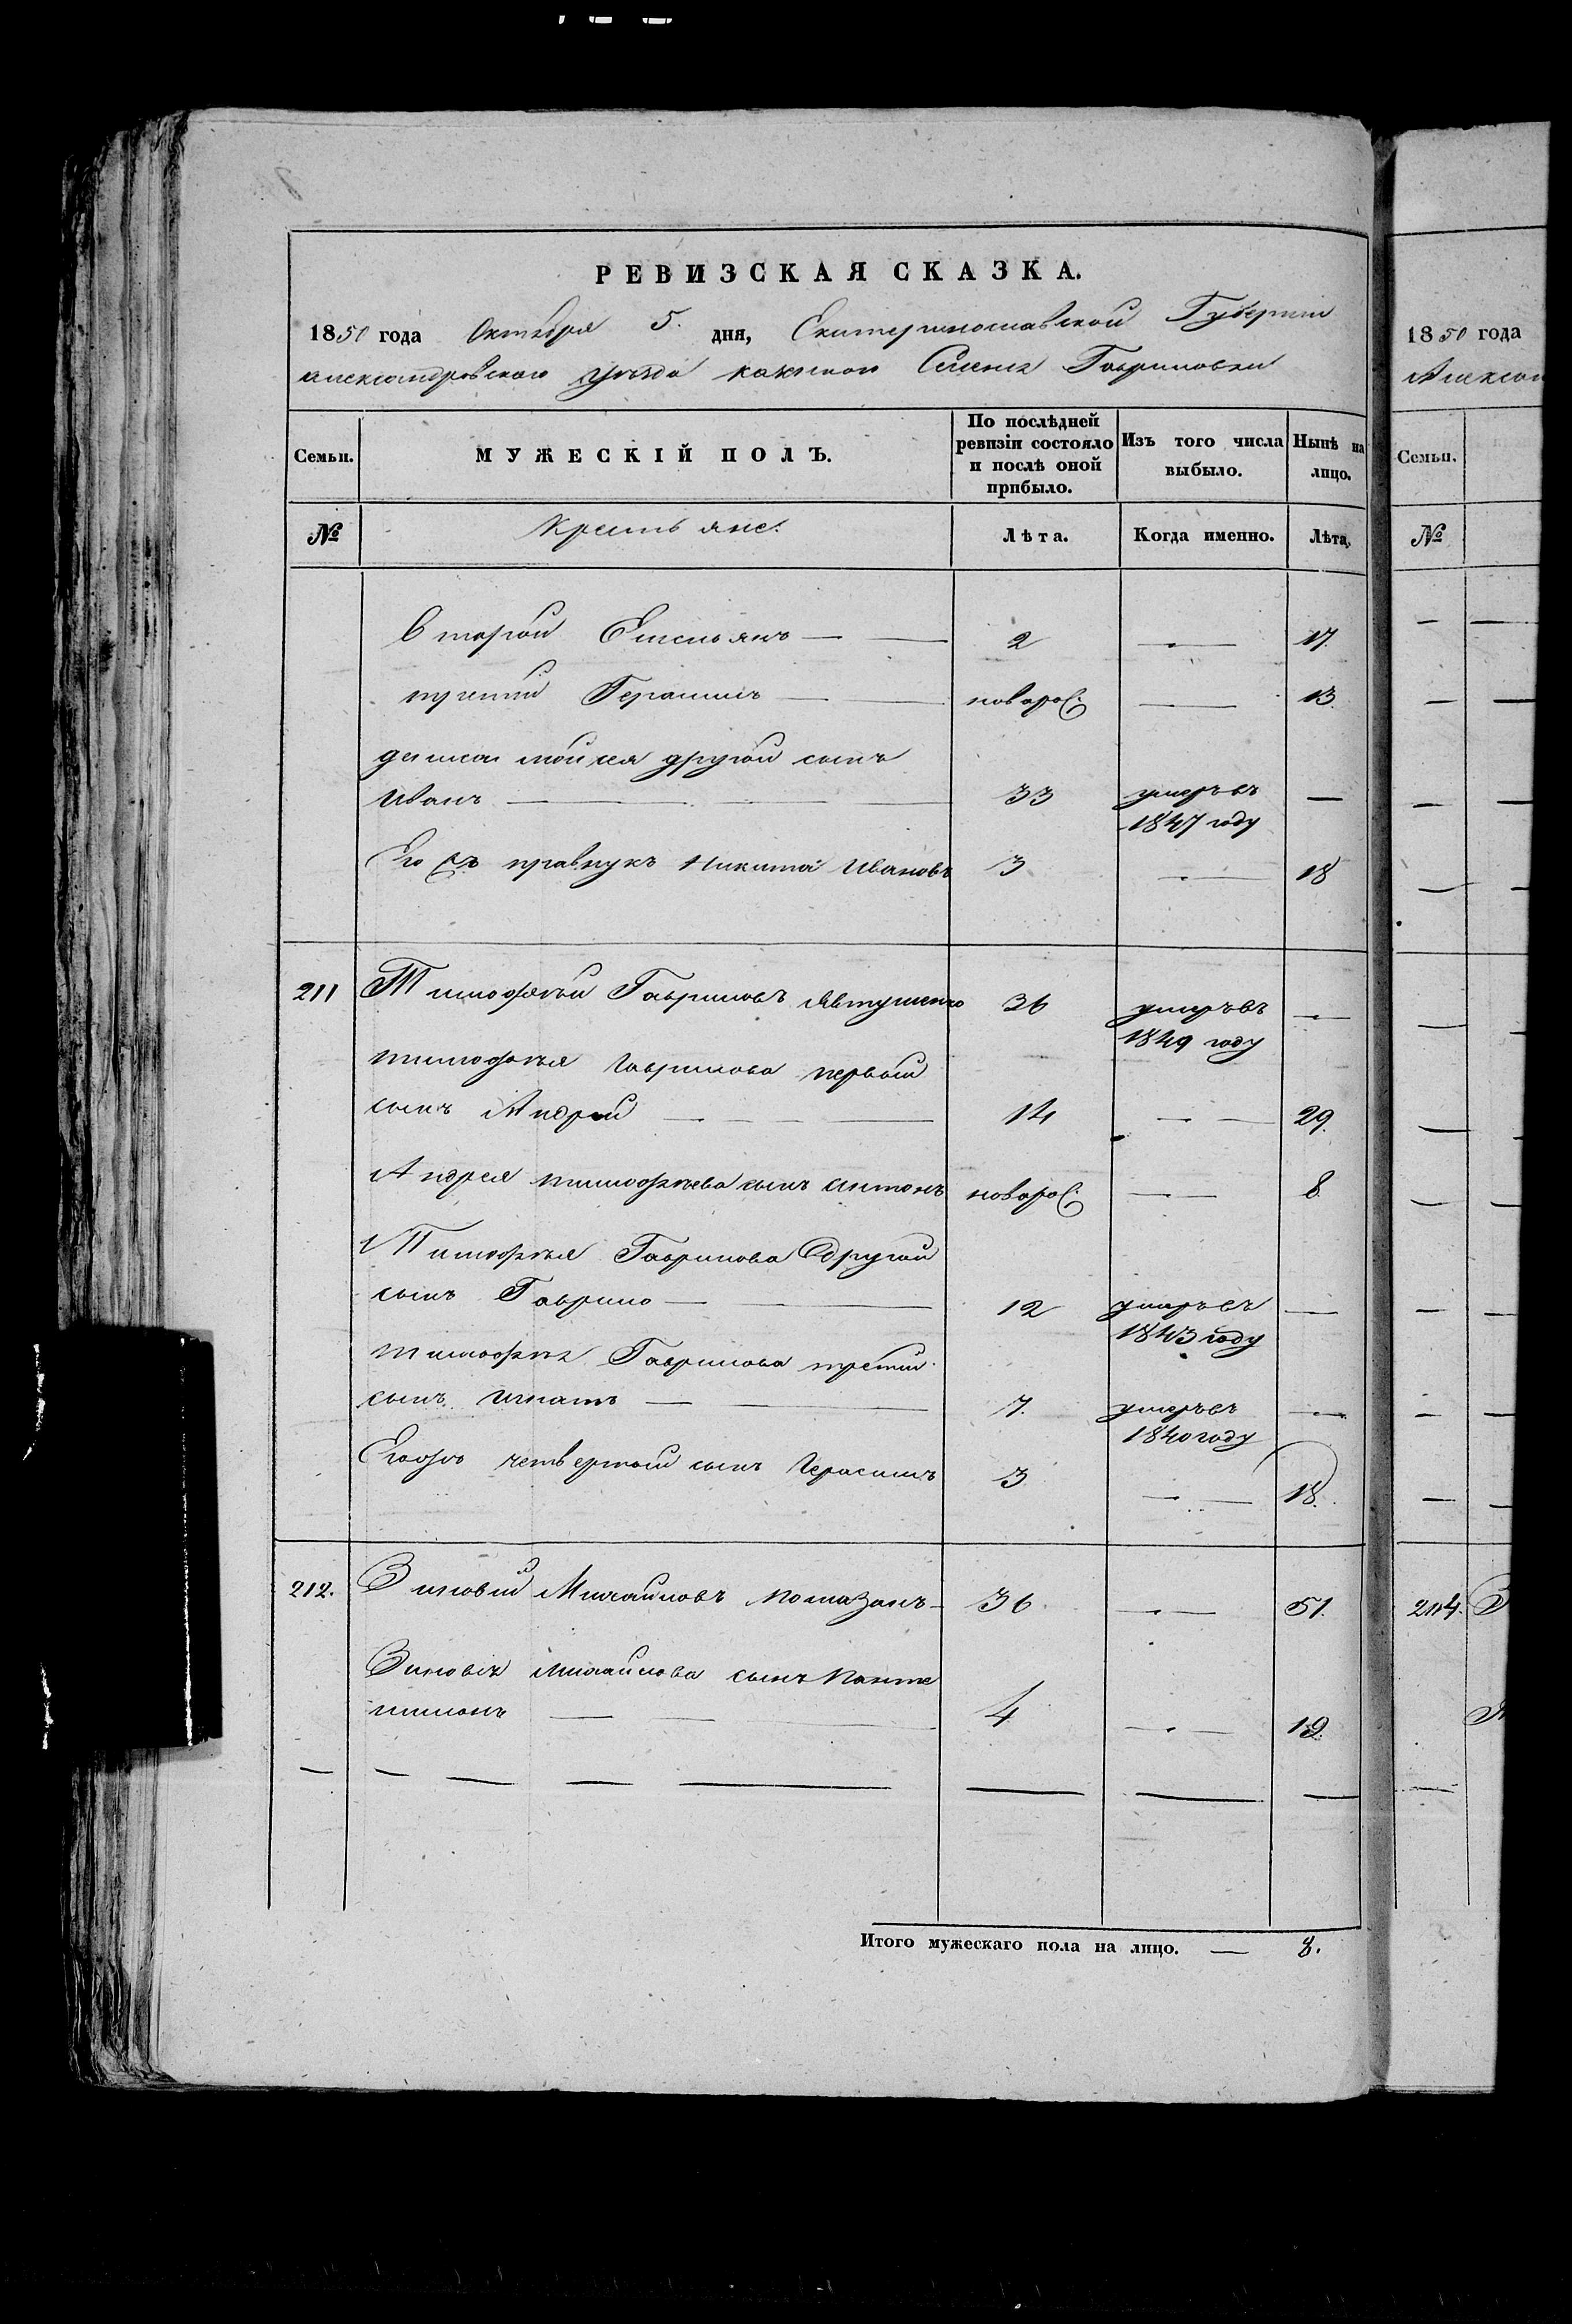 РЕВИЗСКАЯ СКАЗКА.
1850 года Октября 5. дня, Екатеринославской Губернии
александровского уѣзда казенного Селенія Гавриловки
Семьи.
МУЖЕСКІЙ ПОЛЪ.
По послѣдней ревизіи состояло и послѣ оной прибыло.
Изъ того числа выбыло.
Нынѣ на лицо.
№
Крестьяне.
Лѣта.
Когда именно.
Лѣта.
второй Емельянъ — — 2 — 17.
третий Герасимъ — новорос: — 13.
другой сынъ
Иванъ — 33 умеръ въ —
1847 году
Его правнукъ Никита Ивановъ 3 — 18
211 Тимофѣй Гавриловъ Явтушенко 36 умеръ въ —
1849 году
тимофѣя гаврилова первый
сынъ Андрей — 14 — 29.
Андрея тимофѣева сынъ антонъ новорос: — 8
Тимофѣя Гаврилова другой
сынъ Гаврило — 12 умеръ въ —
1843 году
тимофѣя Гаврилова третий
сынъ игнатъ — 7. умеръ въ —
1840 году
Егожъ четвертый сынъ Герасимъ 3 — 18.
212. Зиновий Михайловъ Помазанъ 36 — 51.
Зиновія михайлова сынъ Панте
лимонъ — 4 — 19.
Итого мужескаго пола на лицо. — 8.
1850 года
Семьи.
№
204.